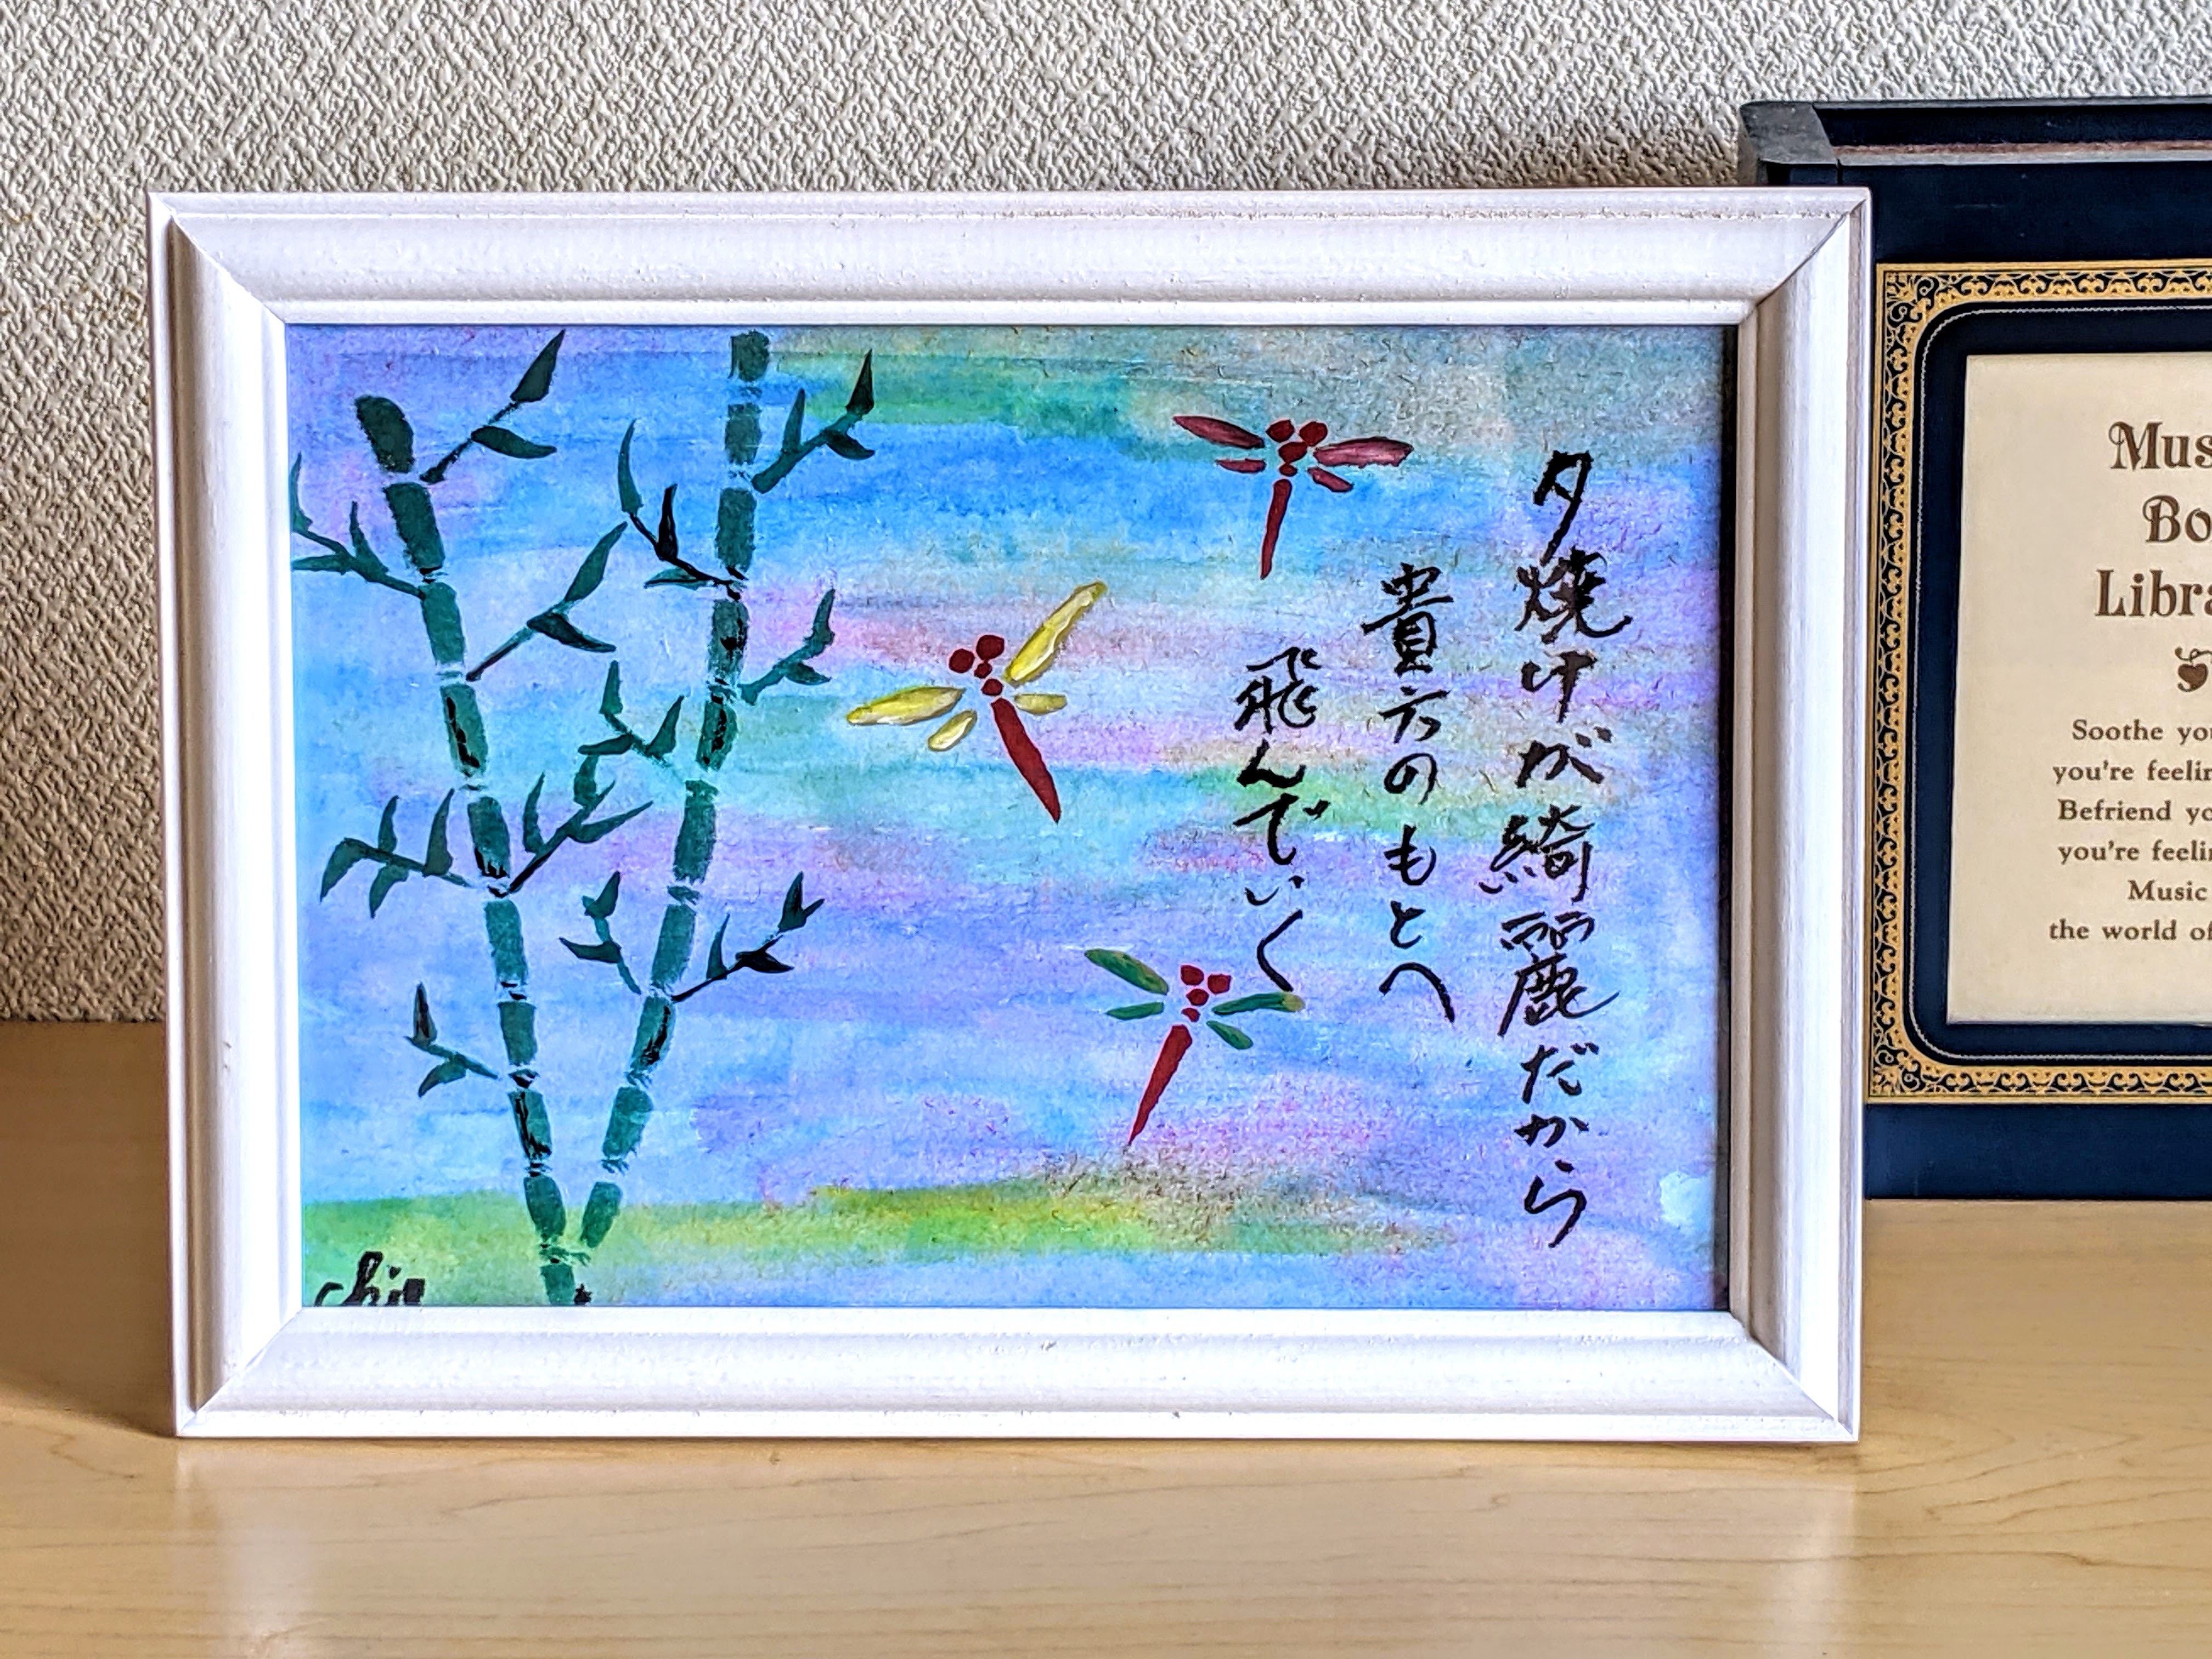 夕焼けが綺麗だから
貴方のもとへ
飛んでいく
Bo
Libra
Soothe
you're
Befriend
you're
Music
the world of